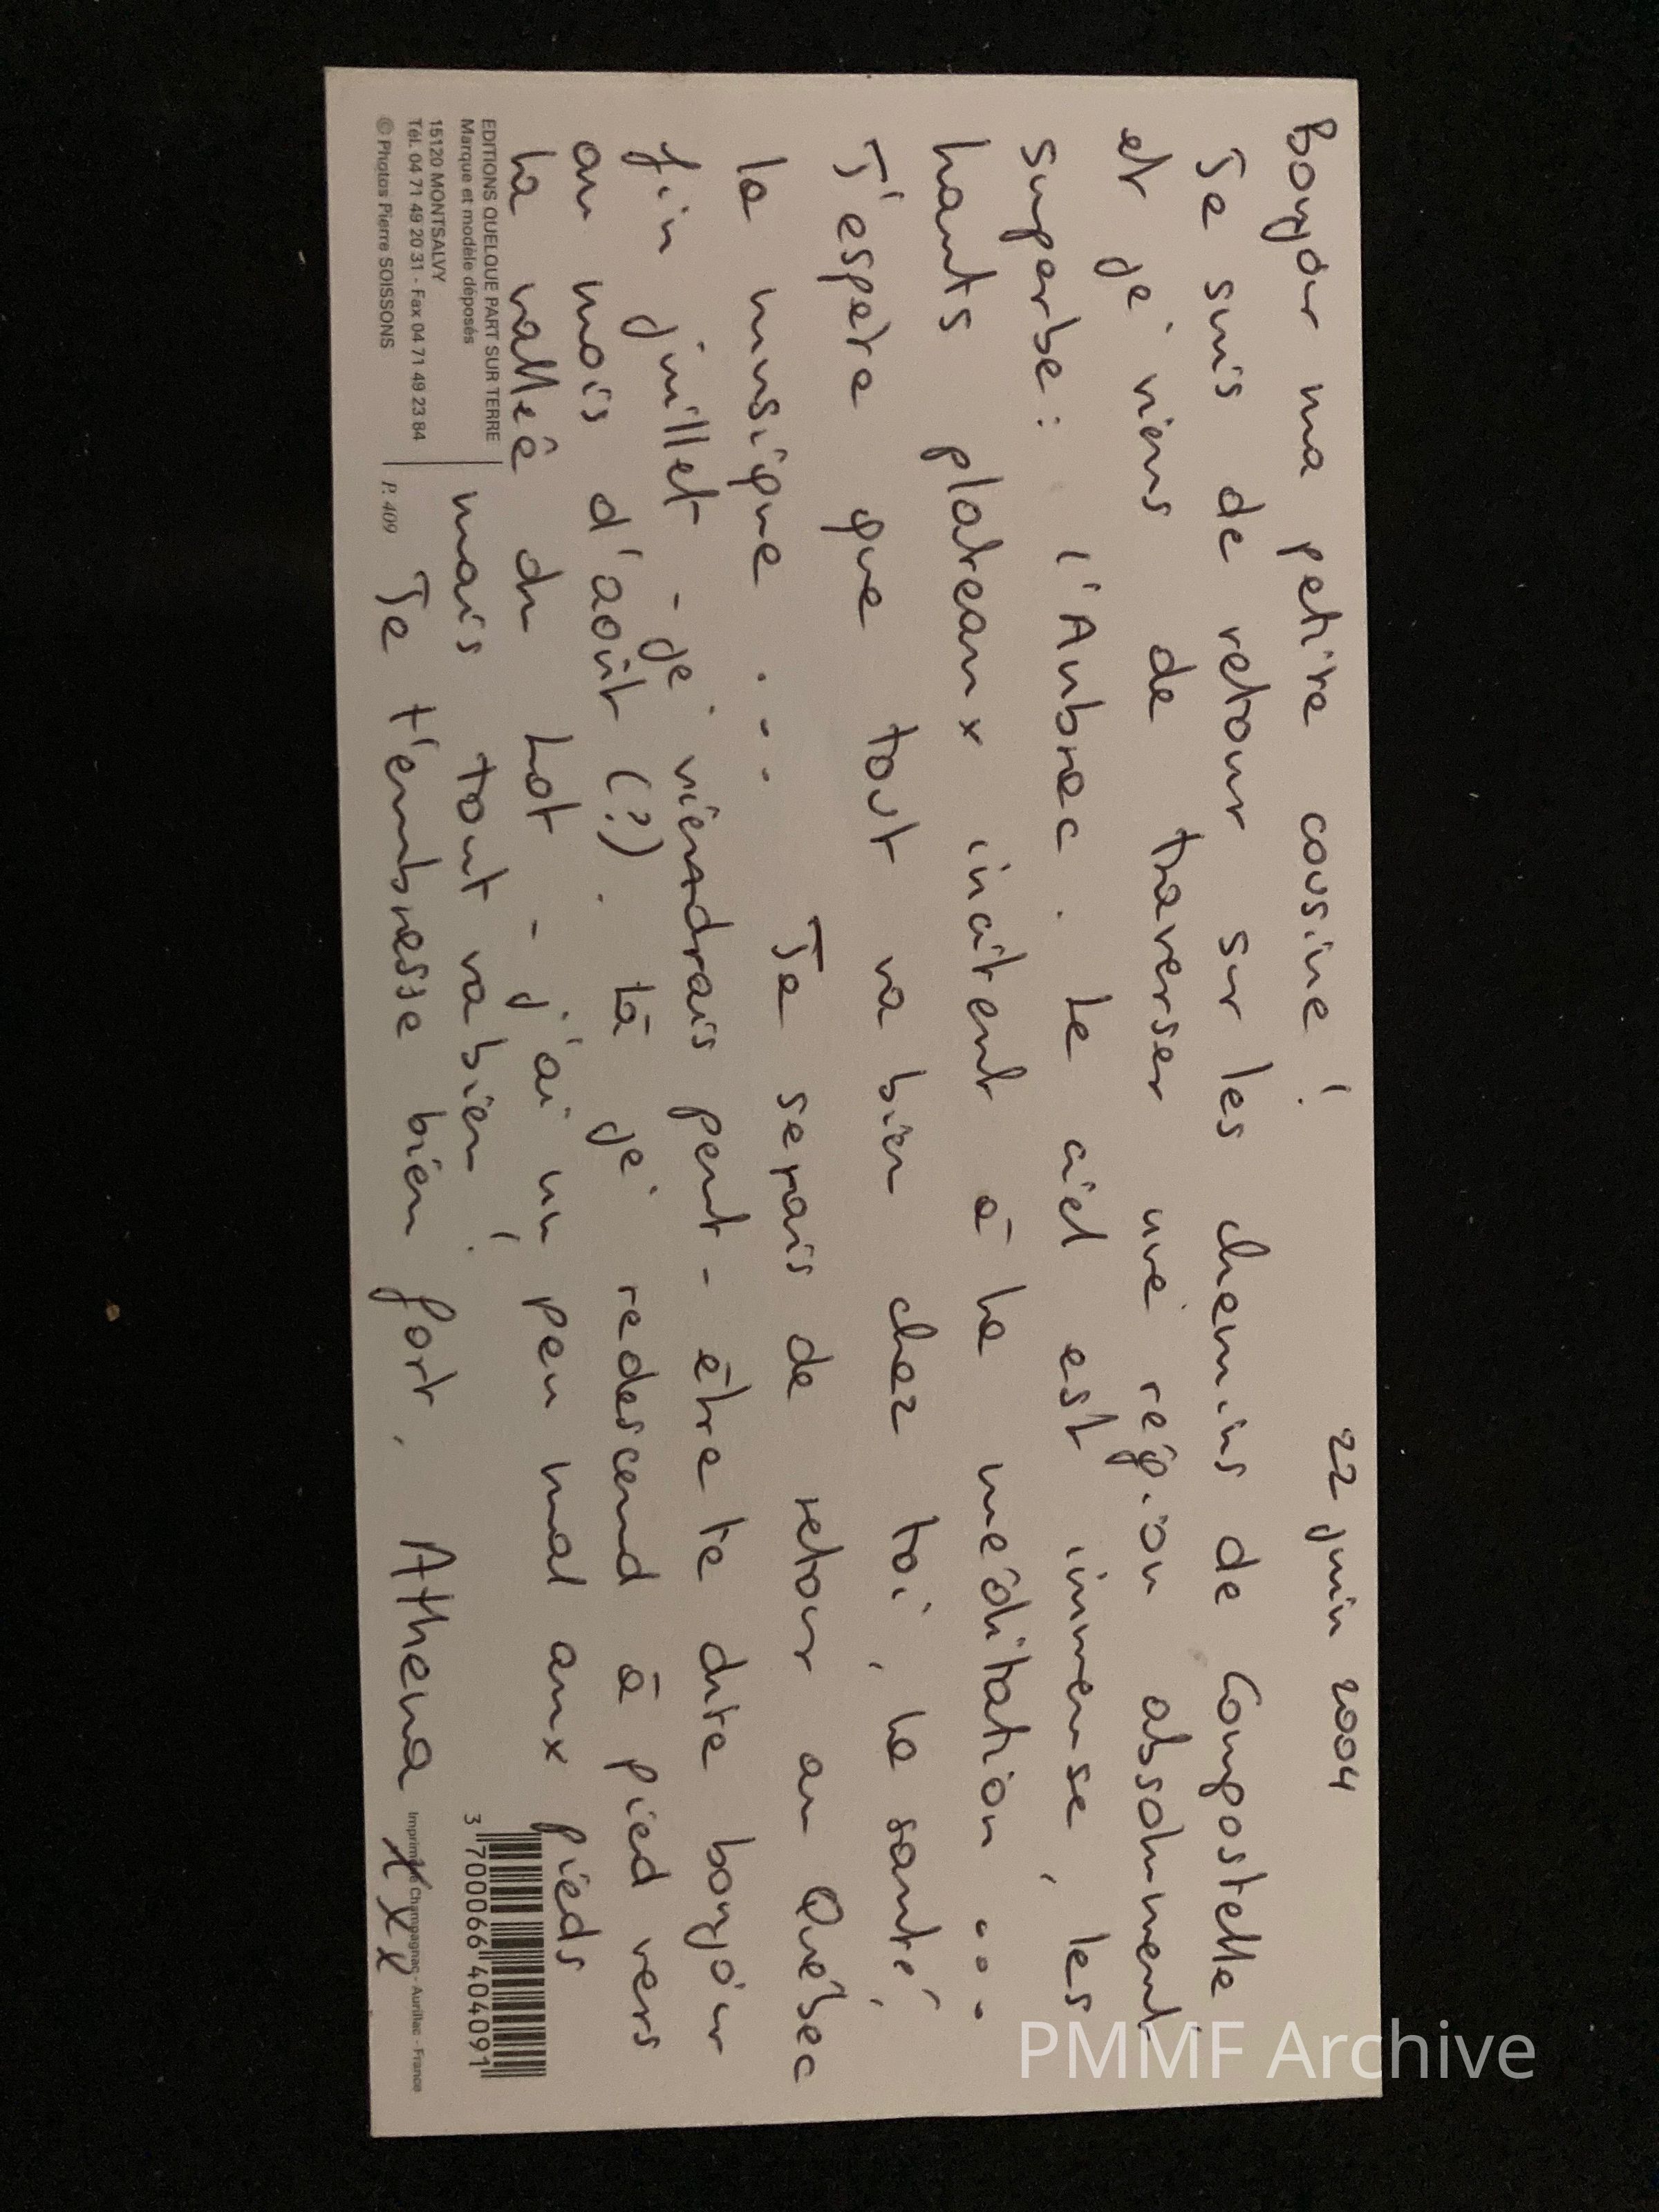 22 juin 2004
Bonjour ma petite cousine !
Je suis de retour sur les chemins de Compostelle
et je viens de traverser une région absolument
superbe : l'Aubrac. Le ciel est immense, les
hauts plateaux incitent à la méditation ...
J'espère que tout va bien chez toi, la santé,
la musique ... Je serais de retour au Québec
fin juillet - je viendrais peut-être te dire bonjour
au mois d'août (?). Là je redescend à pied vers
la vallée du Lot - j'ai un peu mal aux pieds
mais tout va bien !
Je t'embrasse bien fort, Athena xxx
EDITIONS QUELQUE PART SUR TERRE
Marque et modèle déposés
15120 MONTSALVY
Tél. 04 71 49 20 31 - Fax 04 71 49 23 84
© Photos Pierre SOISSONS
P. 409
3 700066 404091
Imprimerie Champagnac - Aurillac - France
PMMF Archive